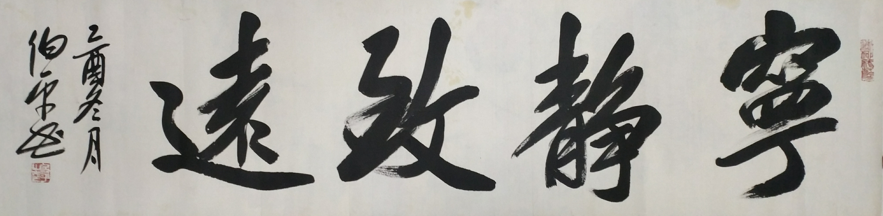 寧靜致遠
乙酉冬月
伯平書